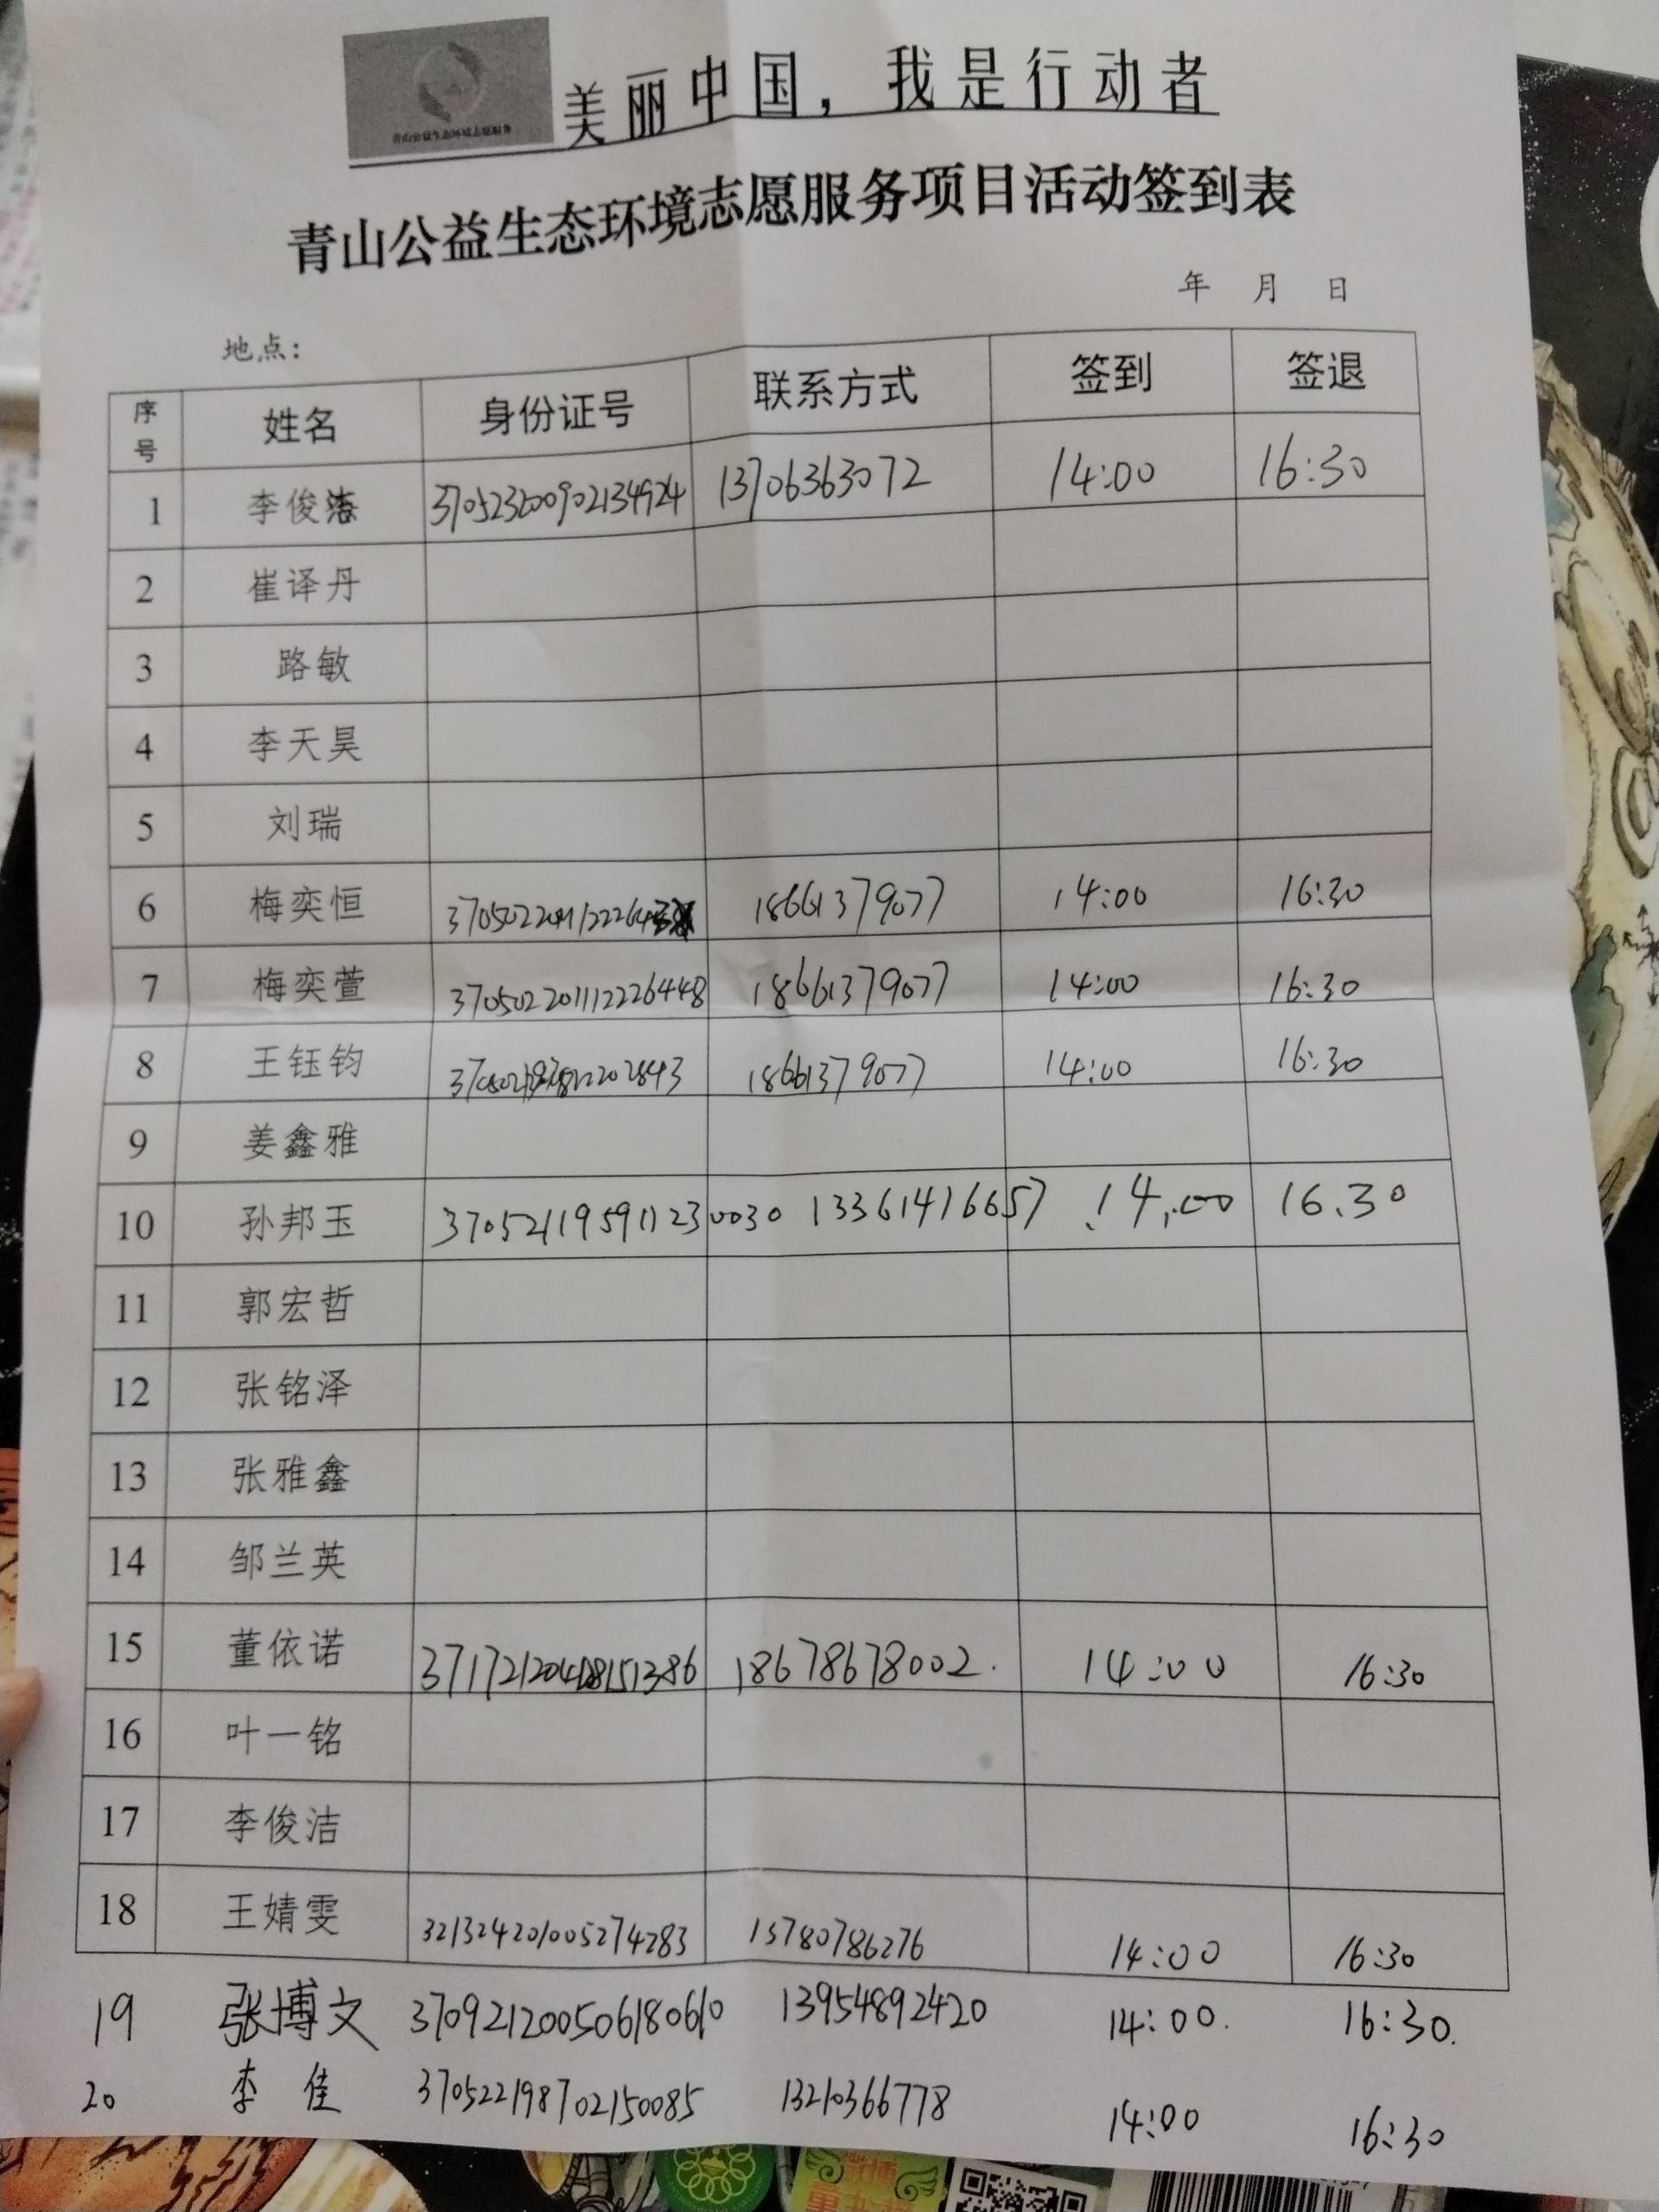 青山公益生态环境志愿服务
美丽中国，我是行动者
青山公益生态环境志愿服务项目活动签到表
年 月 日
地点：
序号 姓名 身份证号 联系方式 签到 签退
1 李俊洁 370523200902134924 13706363072 14:00 16:30
2 崔译丹
3 路敏
4 李天昊
5 刘瑞
6 梅奕恒 18661379077 14:00 16:30
7 梅奕萱 370502201112226448 18661379077 14:00 16:30
8 王钰钧 18661379077 14:00 16:30
9 姜鑫雅
10 孙邦玉 370521195911230030 13361416657 14:00 16.30
11 郭宏哲
12 张铭泽
13 张雅鑫
14 邹兰英
15 董依诺 18678678002. 14:00 16:30
16 叶一铭
17 李俊洁
18 王婧雯 321324201005274283 13780786276 14:00 16:30
19 张博文 370921200506180610 13954892420 14:00. 16:30.
20 李佳 370522198702150085 13210366778 14:00 16:30